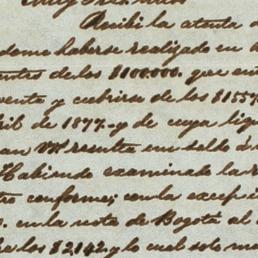 Recibí la atenta d
dome haberse realizado en
entes de los $100.000. que en
vente y cubrirse de los $155
il de 1877 - y de cuya liqu
an VM resulta un saldo á
Habiendo examinado la
tro conforme; con la excep
en la nota de Bogotá al
los $2,142 y lo cual solo m